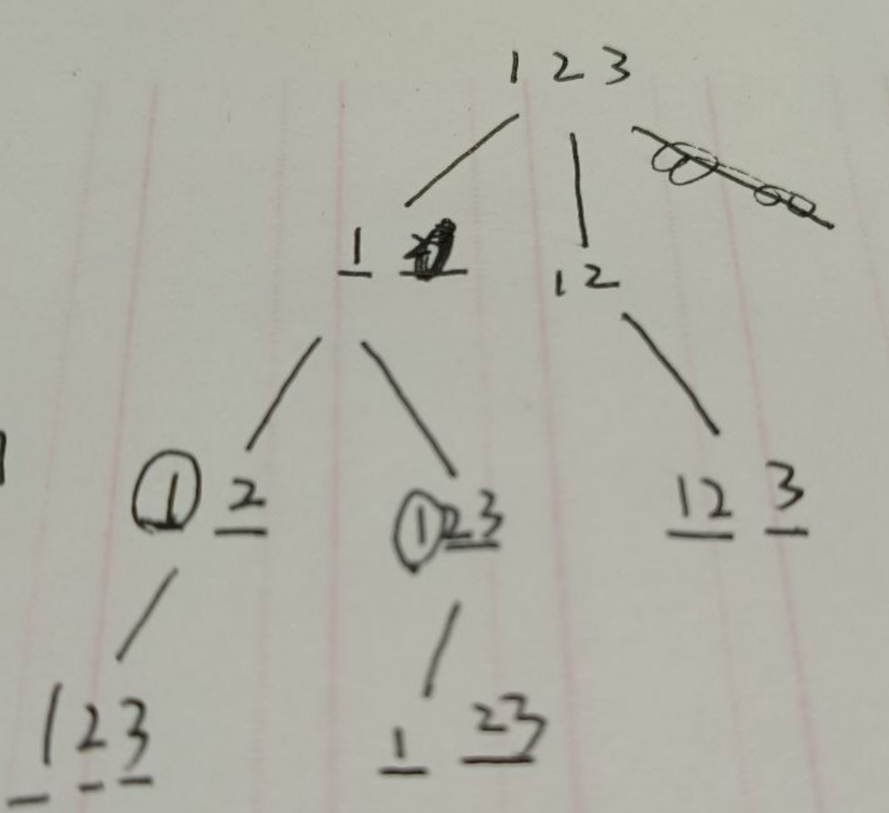 1 2 3
1 12
1 2 1 23 12 3
1 2 3 1 23